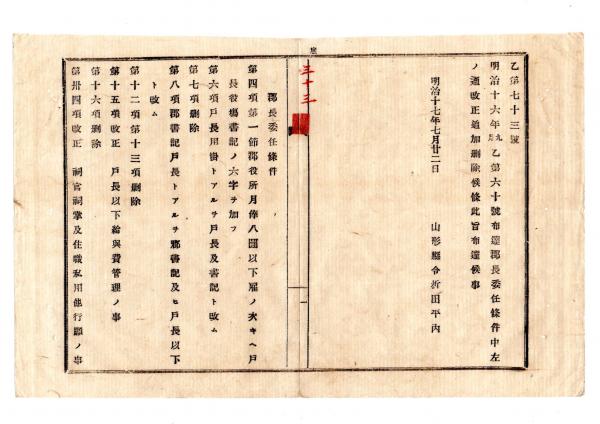 乙第七十三號
明治十六年九月乙第六十號布達郡長委任條件中左
ノ通改正追加刪除候條此旨布達候事
明治十七年七月廿二日
山形縣令折田平内
三十三
郡長委任條件
第四項第一節郡役所月俸八圓以下雇ノ次キヘ戸
長役塲書記ノ六字ヲ加フ
第六項戸長用掛トアルヲ戸長及書記ト改ム
第七項刪除
第八項郡書記戸長トアルヲ郡書記及ヒ戸長以下
ト改ム
第十二項第十三項刪除
第十五項改正 戸長以下給與費管理ノ事
第十六項刪除
第卅四項改正 祠官祠掌及住職私用他行願ノ事